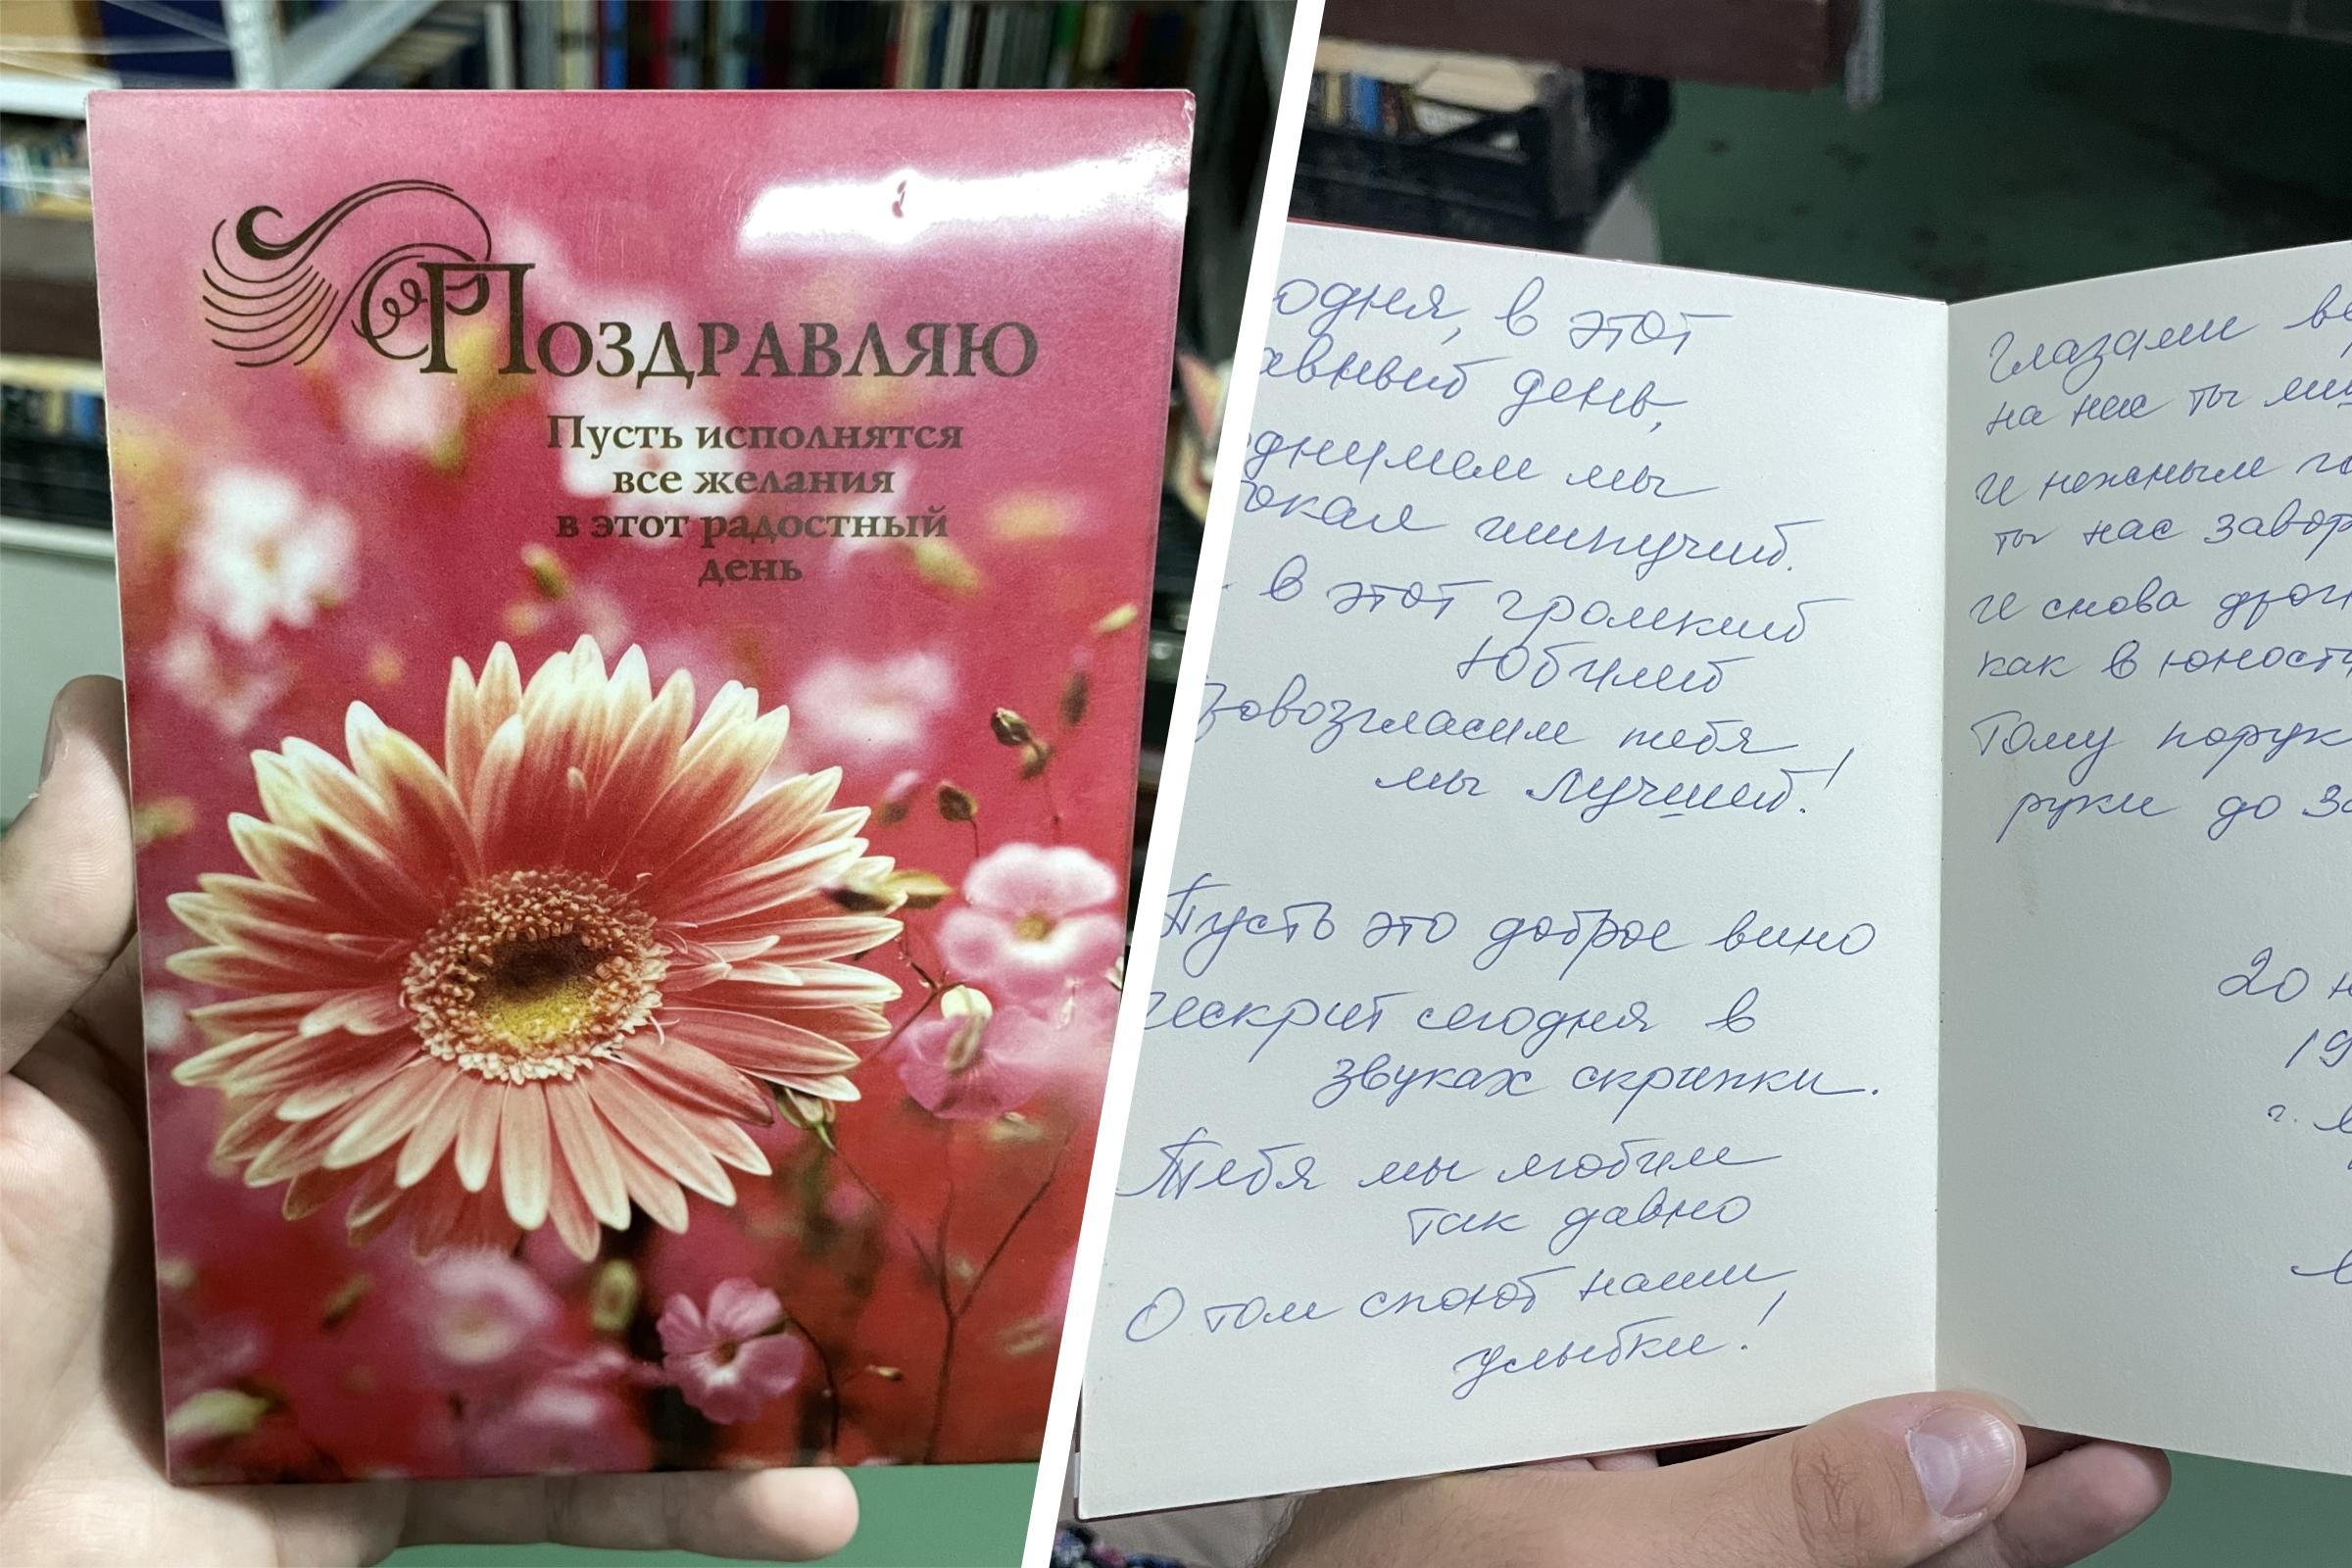 Поздравляю
Пусть исполнятся
все желания
в этот радостный
день
одня, в этот
авный день,
однимем мы
бокал шипучий.
в этот громкий
Юбилей
ровозгласим тебя
мы лучшей!
Пусть это доброе вино
искрит сегодня в
звуках скрипки.
Тебя мы любим
так давно
О том споют наши
улыбки!
Глазами
на нас ты
и нежным
ты нас
и снова
как в юност
Тому порук
руки до
20 н
19
г.